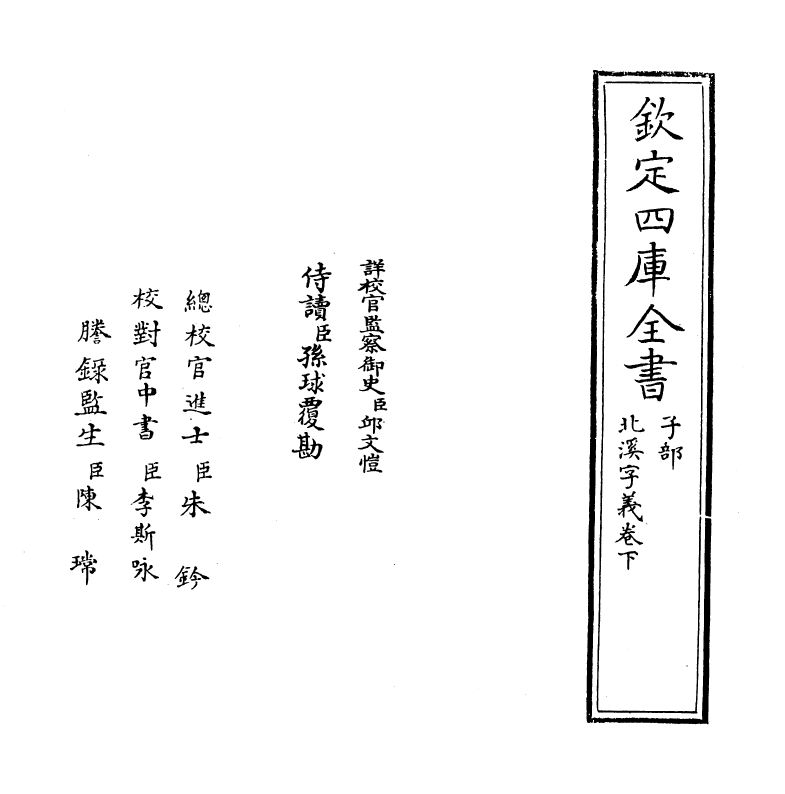 欽定四庫全書
子部
北溪字義卷下
詳校官監察御史臣邱文愷
侍讀臣孫球覆勘
總校官進士臣朱鈐
校對官中書臣李斯咏
謄錄監生臣陳瑺